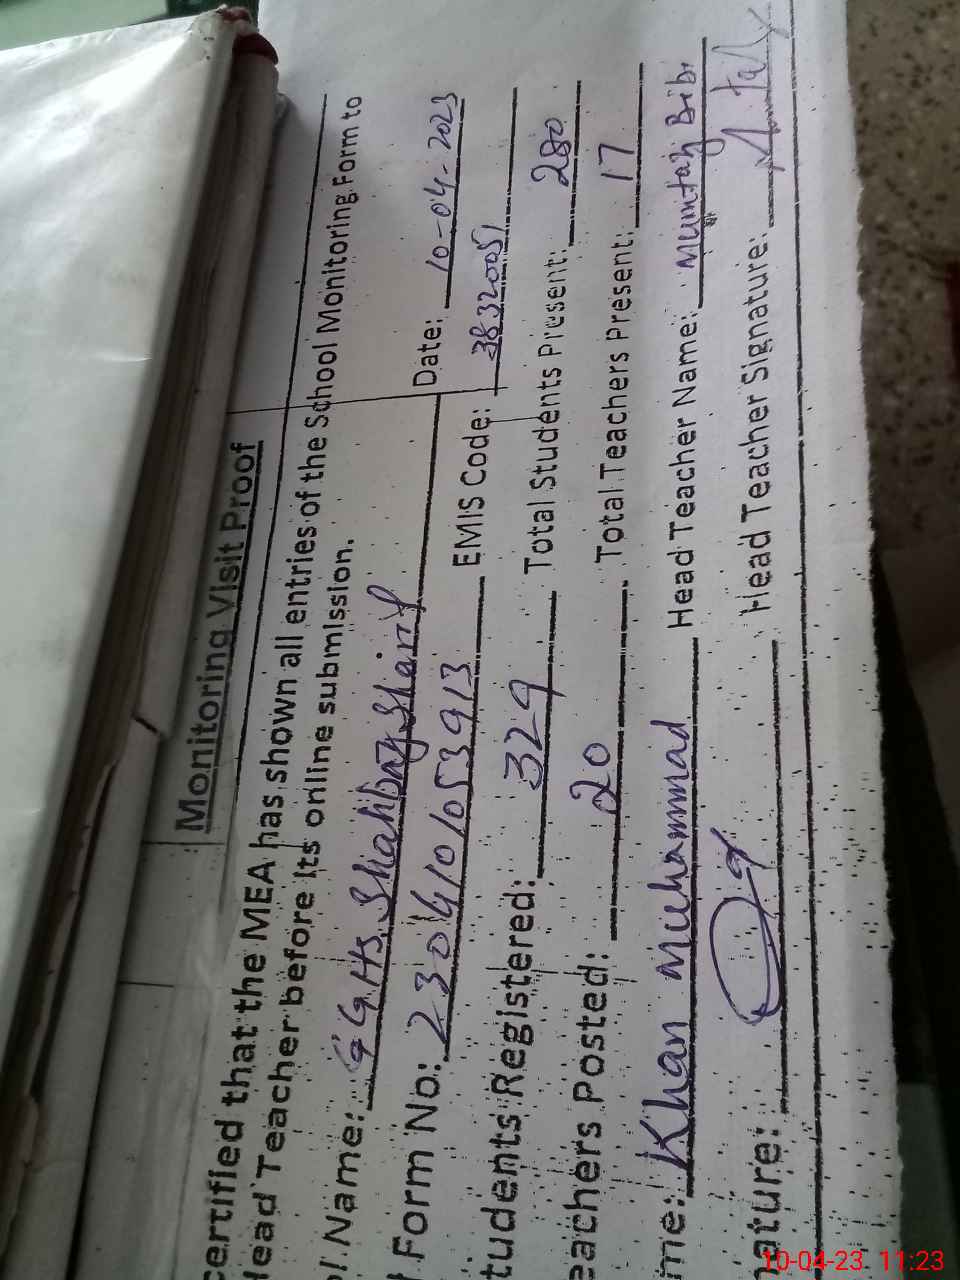 Monitoring Visit Proof
ertified that the MEA has shown all entries of the School Monitoring Form to
Head Teacher before its online submission.
ol Name: GGHS Shahbaz Sharif Date: 10-04-2023
Form No: 2304101053913 EMIS Code: 38320051
tudents Registered: 329 Total Students Present: 280
eachers Posted: 20 Total Teachers Present: 17
me: Khan Muhammad Head Teacher Name: Mumtaz Bibi
nature: Head Teacher Signature:
10-04-23 11:23